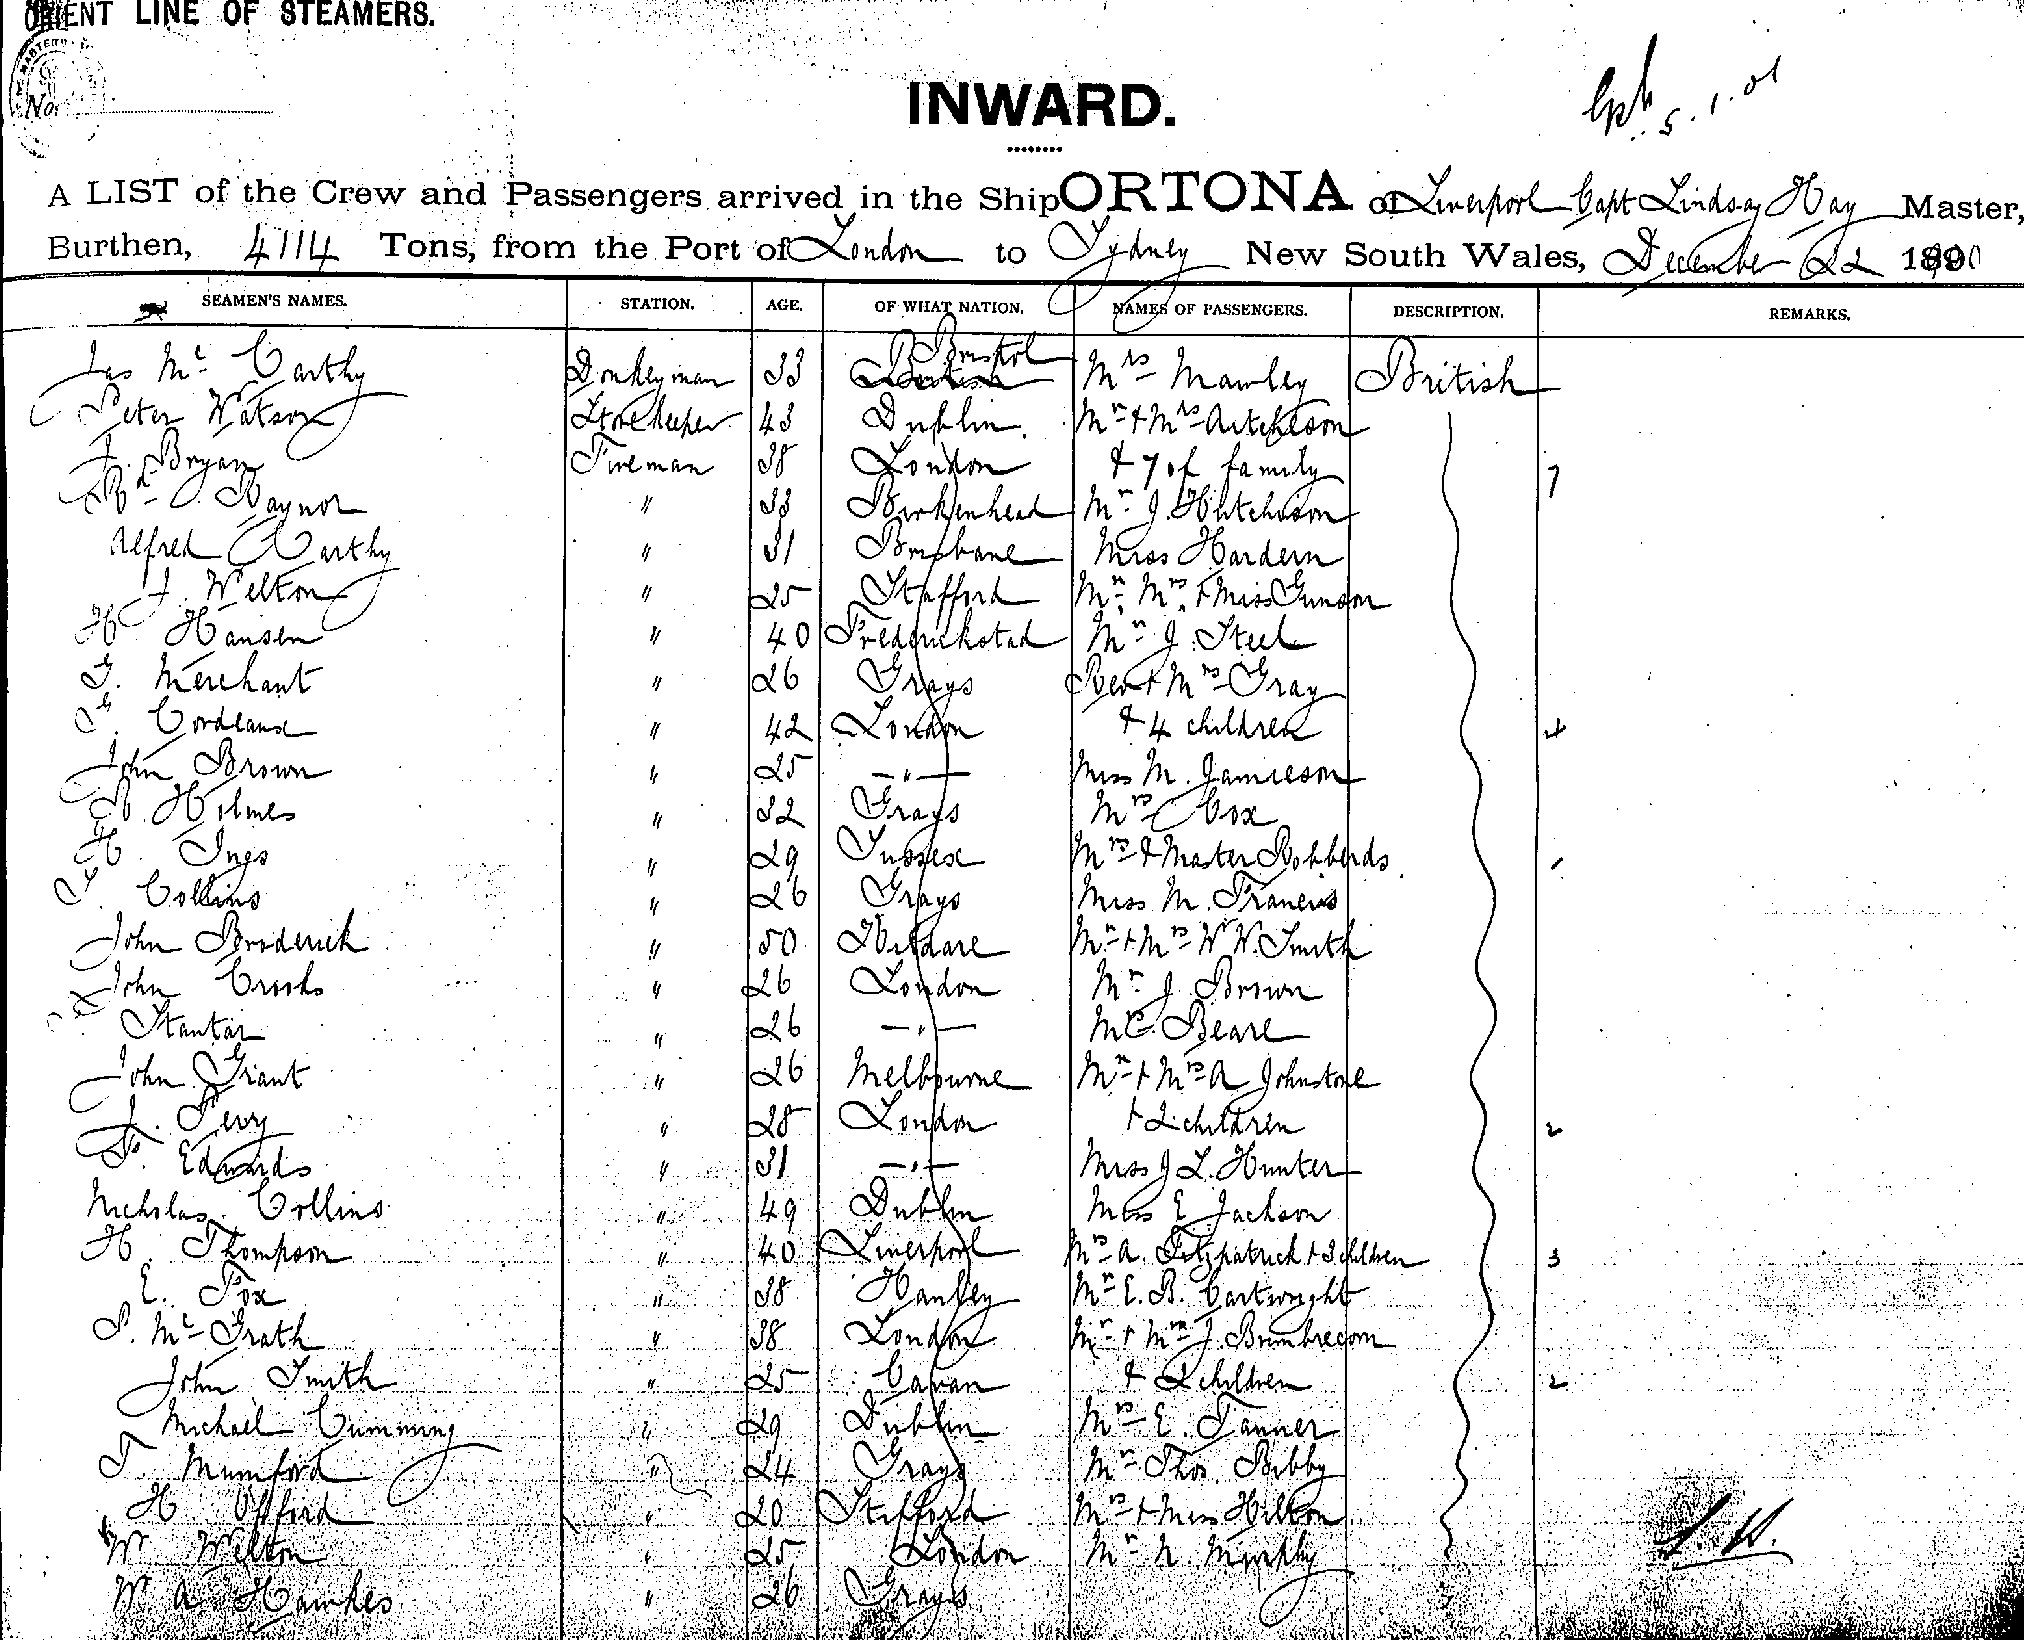 ORIENT LINE OF STEAMERS.
No.
INWARD.
5.1.01
A LIST of the Crew and Passengers arrived in the Ship ORTONA of Liverpool Capt Lindsay Hay Master,
Burthen, 4114 Tons, from the Port of London to Sydney New South Wales, December 22 1890
SEAMEN'S NAMES. STATION. AGE. OF WHAT NATION. NAMES OF PASSENGERS. DESCRIPTION. REMARKS.
Jas Mc Carthy Donkeyman 33 British Bristol Mrs Mawley British
Peter Watson Storekeeper 43 Dublin Mr & Mrs Aitcheson
J. Bryan Fireman 38 London & 7 of family 7
Rd Raynor " 33 Birkenhead Mr J. Hutchison
Alfred Carthy " 31 Brisbane Miss Hardern
J. Welton " 25 Stafford Mr, Mrs, & Miss Gunson
H Hansen " 40 Frederickstad Mr J. Steel
G. Merchant " 26 Grays Rev & Mrs Gray
Cordeaux " 42 London & 4 children 4
John Brown " 25 — " — Miss M. Jamieson
Holmes " 32 Grays Mrs Cox
H. Ings " 29 Sussex Mrs & Master Robberds 1
Collins " 26 Grays Miss M. Francis
John Broderick " 50 Kildare Mr & Mrs W W. Smith
John Crooks " 26 London Mr J Brown
Stantar " 26 — " — Beare
John Grant " 26 Melbourne Mr & Mrs A Johnstone
J. Pevy " 28 London & 2 children 2
F. Edwards " 31 — " — Miss J L. Hunter
Nicholas Collins " 49 Dublin Miss E Jackson
H. Thompson " 40 Liverpool Mrs A. Fitzpatrick & 3 children 3
E. Fox " 38 Hanley Mr E. B. Cartwright
P. Mc Grath " 38 London Mr & Mrs J. Brimbrecom
John Smith " 25 Cavan & 2 children 2
Michael Cumming " 29 Dublin Mrs E. Tanner
T Mumford " 24 Grays Mr Thos Bibby
H Offord " 20 Stafford Mrs & Miss Hilton
W Welton " 25 London Mr N Murphy
W A Hawkes " 26 Grays